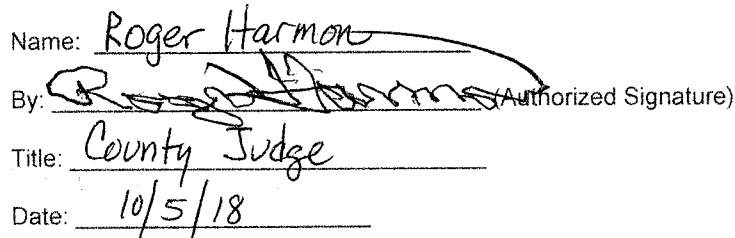 Name: Roger Harmon
By: Roger Harmon (Authorized Signature)
Title: County Judge
Date: 10/5/18